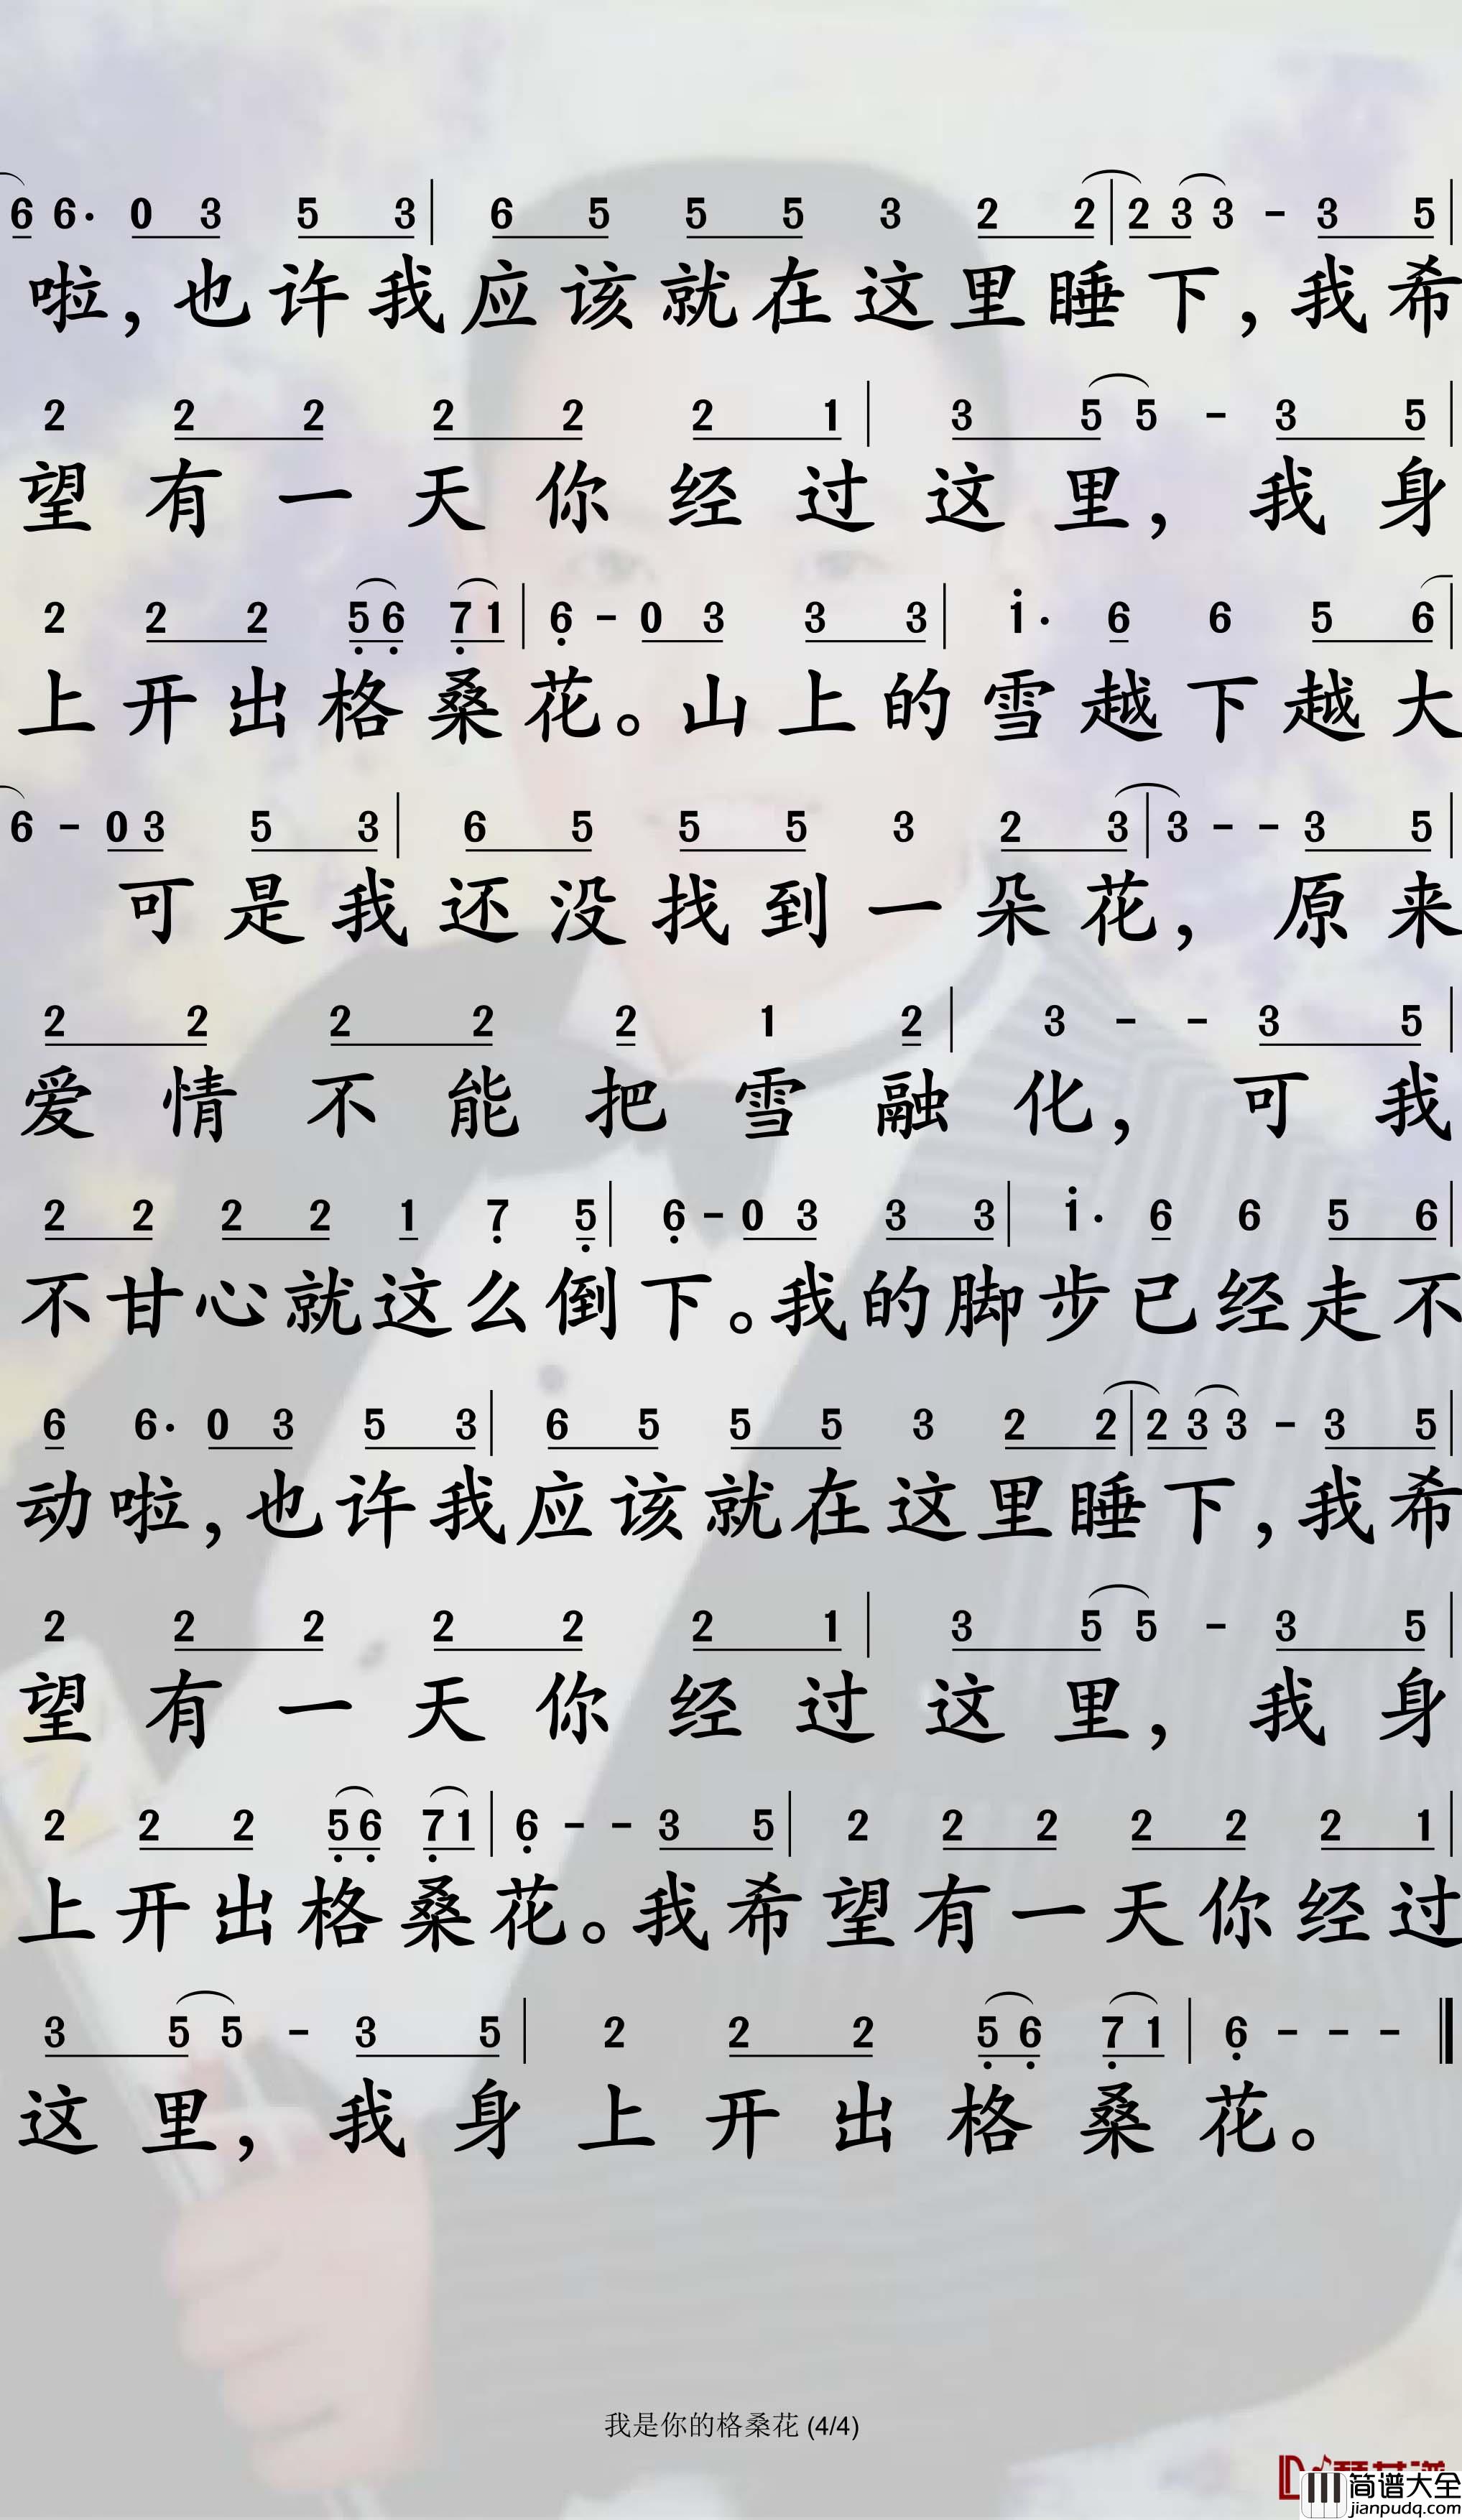 6 6· 0 3 5 3 | 6 5 5 5 3 2 2 | 2 3 3 - 3 5 |
啦,也许我应该就在这里睡下,我希
2 2 2 2 2 2 1 | 3 5 5 - 3 5 |
望有一天你经过这里,我身
2 2 2 5 6 7 1 | 6 - 0 3 3 3 | 1· 6 6 5 6 |
上开出格桑花。山上的雪越下越大
6 - 0 3 5 3 | 6 5 5 5 3 2 3 | 3 - - 3 5 |
可是我还没找到一朵花,原来
2 2 2 2 2 1 2 | 3 - - 3 5 |
爱情不能把雪融化,可我
2 2 2 2 1 7 5 | 6 - 0 3 3 3 | 1· 6 6 5 6 |
不甘心就这么倒下。我的脚步已经走不
6 6· 0 3 5 3 | 6 5 5 5 3 2 2 | 2 3 3 - 3 5 |
动啦,也许我应该就在这里睡下,我希
2 2 2 2 2 2 1 | 3 5 5 - 3 5 |
望有一天你经过这里,我身
2 2 2 5 6 7 1 | 6 - - 3 5 | 2 2 2 2 2 2 1 |
上开出格桑花。我希望有一天你经过
3 5 5 - 3 5 | 2 2 2 5 6 7 1 | 6 - - - ‖
这里,我身上开出格桑花。
我是你的格桑花 (4/4)
简谱大全
jianpudq.com